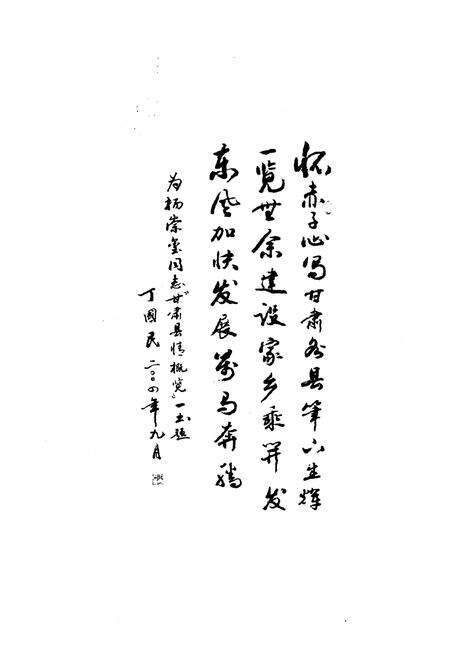 怀赤子心写甘肃各县笔下生辉
一览无余建设家乡乘开发
东风加快发展万马奔腾
为杨崇玺同志甘肃县情概览一书题
丁国民 二〇〇四年九月